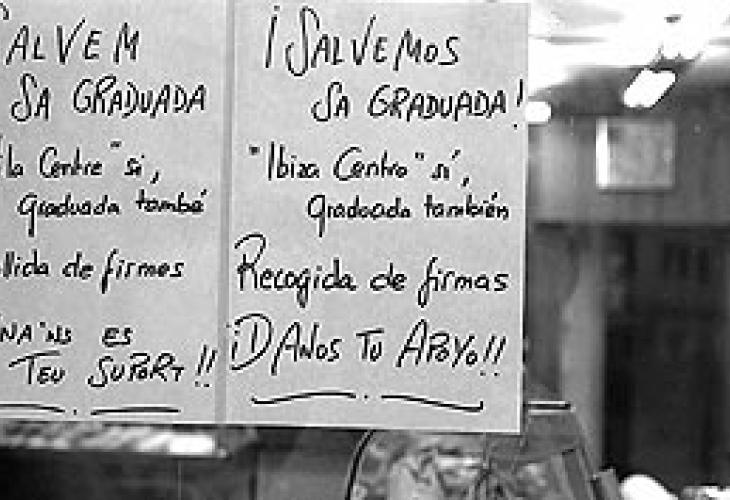 SALVEM
SA GRADUADA
Vila Centre" si,
graduada també
llida de firmes
NA'NS ES
TEU SUPORT!!
¡SALVEMOS
SA GRADUADA!
"Ibiza Centro" sí,
graduada también
Recogida de firmas
¡DANOS TU APOYO!!